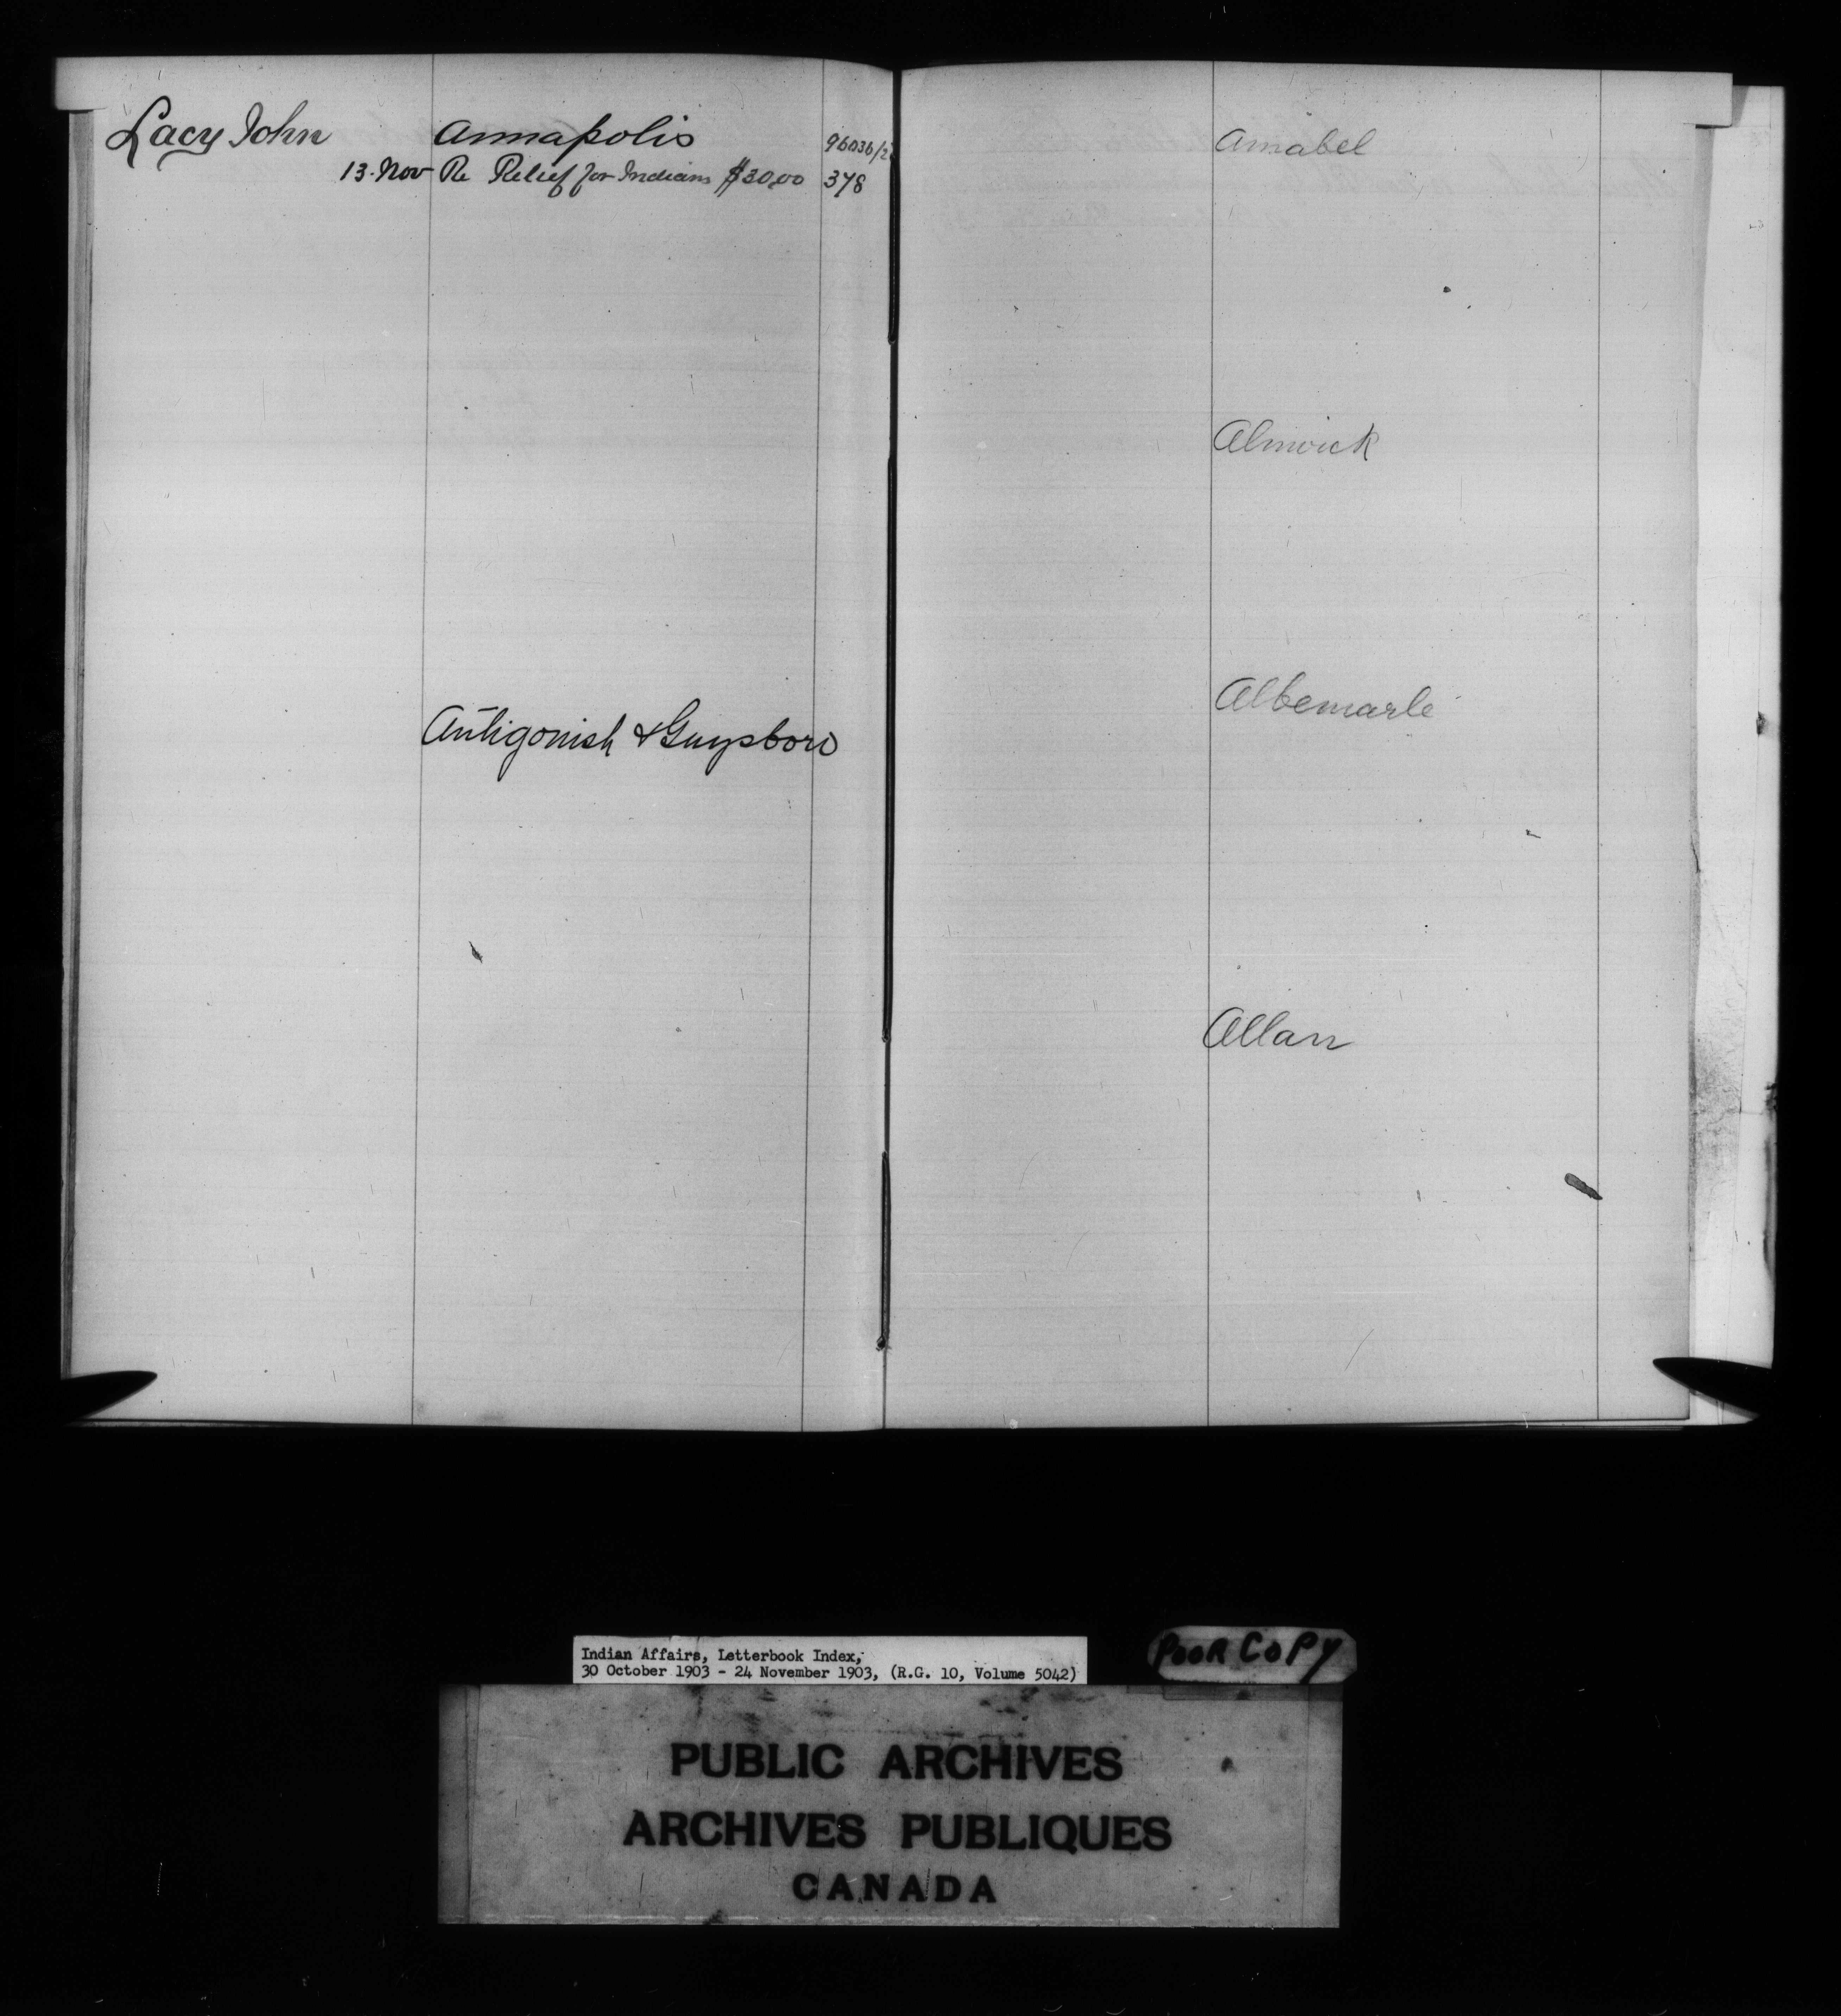 Lacy John Annapolis 96036/2
13. Nov Re Relief for Indians $30.00 378
Antigonish & Guysboro
Amabel
Alnwick
Albemarle
Allan
Indian Affairs, Letterbook Index,
30 October 1903 - 24 November 1903, (R.G. 10, Volume 5042)
POOR COPY
PUBLIC ARCHIVES
ARCHIVES PUBLIQUES
CANADA